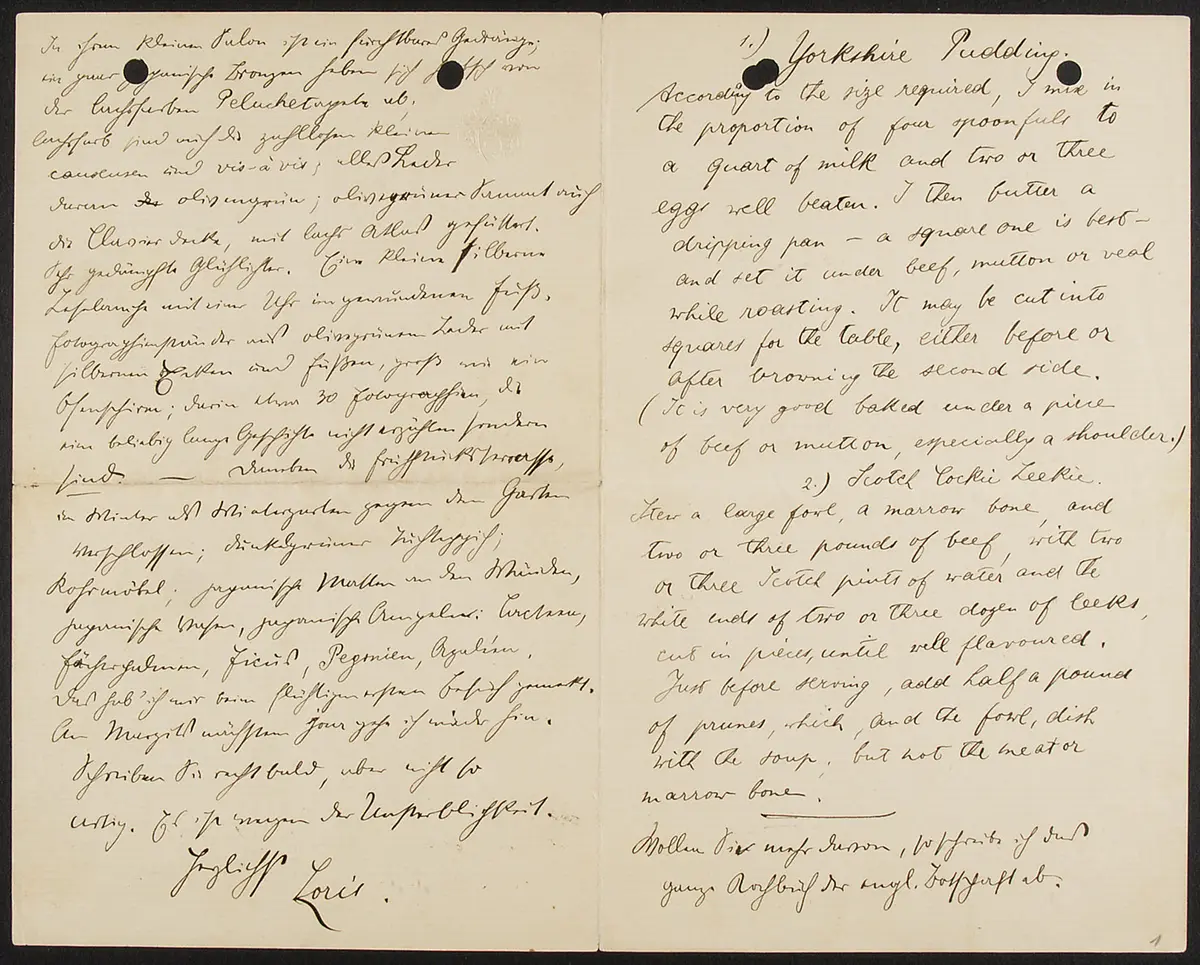 In ihrem kleinen Salon ist ein furchtbares Gedränge;
ein paar japanische Bronzen heben sich von
der lachsfarben Peluchetapete ab.
lachsfarb sind auch die zahllosen kleinen
causeusen und vis-à-vis; alles Leder
daran olivengrün; olivegrüner Sammt auch
die Clavierdecke, mit lachs Atlas gefüttert.
Sehr gedämpfte Glühlichter. Eine kleine silberne
Leselampe mit einer Uhr im gewundenen Fuß.
Fotographienständer aus olivegrünem Leder mit
silbernen Haken und Füßen, groß wie ein
Ofenschirm; darin etwa 30 Fotographien, die
eine beliebig lange Geschichte nicht erzählen sondern
sind. — Daneben die Frühstücksterrasse,
im Winter als Wintergarten gegen den Garten
verschlossen; dunkelgrüner Tuchteppich;
Rohrmöbel; japanische Matten an den Wänden,
japanische Vasen, japanische Ampeln: Cacteen,
Fächerpalmen, Ficus, Begonien, Azalien.
Das hab' ich mir beim flüchtigen ersten Besuch gemerkt.
An Margits nächstem Jour geh ich wieder hin.
Schreiben Sie recht bald, aber nicht so
artig. Es ist wegen der Unsterblichkeit.
Herzlichst
Loris.
1.) Yorkshire Pudding.
According to the size required, I mix in
the proportion of four spoonfuls to
a quart of milk and two or three
eggs well beaten. I then butter a
dripping pan – a square one is best –
and set it under beef, mutton or veal
while roasting. It may be cut into
squares for the table, either before or
after browning the second side.
(It is very good baked under a piece
of beef or mutton, especially a shoulder.)
2.) Scotch Cockie Leekie.
Stew a large fowl, a marrow bone, and
two or three pounds of beef, with two
or three Scotch pints of water and the
white ends of two or three dozen of leeks,
cut in pieces, until well flavoured.
Just before serving, add half a pound
of prunes, which, and the fowl, dish
with the soup, but not the meat or
marrow bone.
Wollen Sie mehr davon, so schreibe ich das
ganze Kochbuch der engl. Botschaft ab.
1